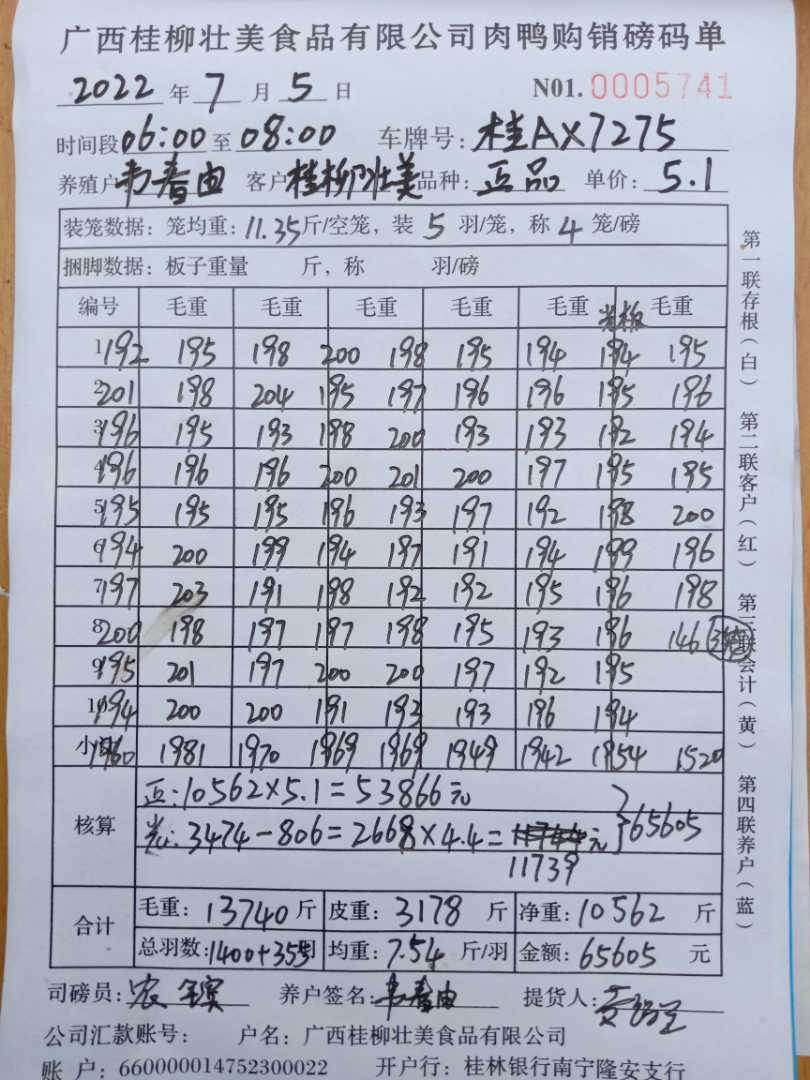 广西桂柳壮美食品有限公司肉鸭购销磅码单
2022 年 7 月 5 日 N01. 0005741
时间段 06:00 至 08:00 车牌号: 桂AX7275
养殖户 韦春由 客户 桂柳壮美 品种: 正品 单价: 5.1
装笼数据: 笼均重: 11.35 斤/空笼, 装 5 羽/笼, 称 4 笼/磅
捆脚数据: 板子重量 斤, 称 羽/磅
编号 毛重 毛重 毛重 毛重 毛重 毛重
1 192 195 198 200 198 195 194 194 195
2 201 198 204 195 197 196 196 195 196
3 196 195 193 198 200 193 193 192 194
4 196 196 196 200 201 200 197 195 195
5 195 195 195 196 193 197 192 198 200
6 194 200 199 194 197 191 194 199 196
7 197 203 191 198 192 192 195 196 198
8 200 198 197 197 198 195 193 196 146
9 195 201 197 200 200 197 192 195
10 194 200 200 191 193 193 196 194
小 1960 1981 1970 1969 1969 1949 1942 1954 1520
核算
正:10562×5.1=53866元
3474-806=2668×4.4= 元 }65605
11739
合计
毛重: 13740 斤 皮重: 3178 斤 净重: 10562 斤
总羽数: 1400+355 均重: 7.54 斤/羽 金额: 65605 元
司磅员: 农 养户签名: 韦春由 提货人:
公司汇款账号: 户名: 广西桂柳壮美食品有限公司
账 户: 660000014752300022 开户行: 桂林银行南宁隆安支行
第一联存根(白) 第二联客户(红) 第三联会计(黄) 第四联养户(蓝)